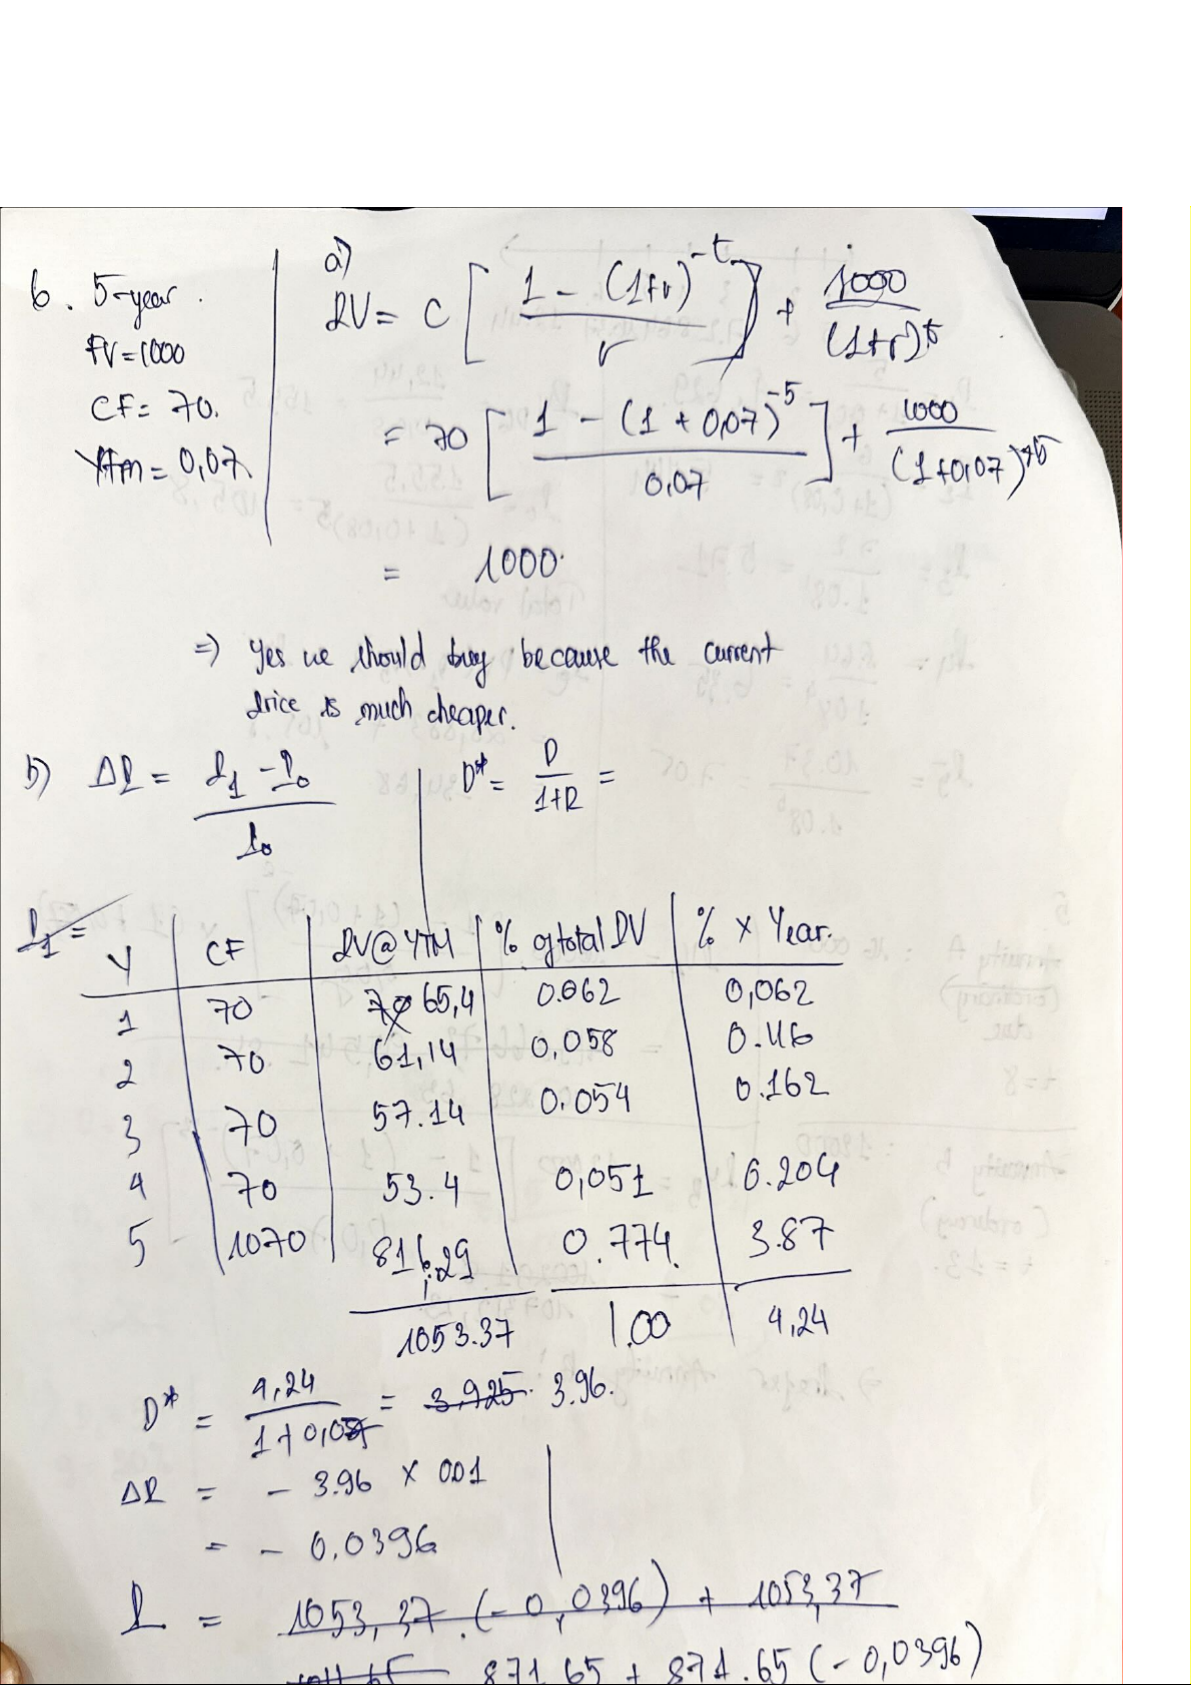 6. 5-year.
FV=1000
CF= 70.
YTM = 0,07.
a)
PV= C [ 1 - (1+r)^-t / r ] + 1000 / (1+r)^t
= 70 [ 1 - (1 + 0,07)^-5 / 0,07 ] + 1000 / (1+0,07)^5
= 1000.
=) Yes we should buy because the current
price is much cheaper.
b) ΔP = P1 - P0 / P0
D* = D / 1+R =
P1 =
Y | CF | PV@YTM | % of total PV | % x Year.
1 | 70 | 70 65,4 | 0.062 | 0,062
2 | 70 | 61,14 | 0,058 | 0.116
3 | 70 | 57.14 | 0.054 | 0.162
4 | 70 | 53.4 | 0,051 | 0.204
5 | 1070 | 816.29 | 0.774. | 3.87
1053.37 | 1.00 | 4,24
D* = 4,24 / 1+0,07 = 3.925. 3.96.
ΔP = - 3.96 x 001
= - 0.0396
P = 1053,37.(-0,0396) + 1053,37
871.65 + 871.65 (-0,0396)